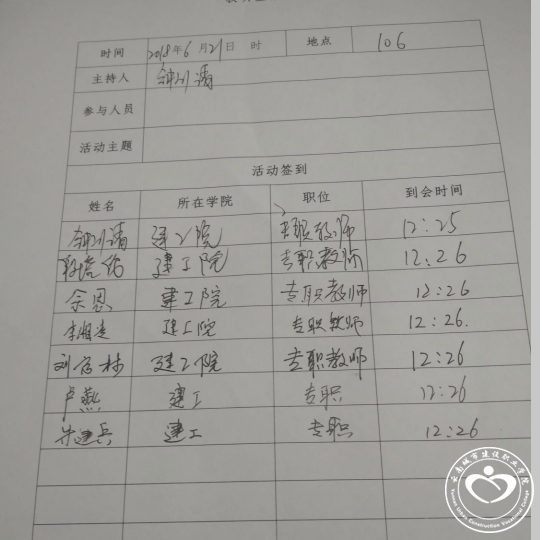 时间 2018年6月21日 时 地点 106
主持人 钟川清
参与人员
活动主题
活动签到
姓名 所在学院 职位 到会时间
钟川清 建工院 专职教师 12:25
建工院 专职教师 12:26
余恩 建工院 专职教师 12:26
建工院 专职教师 12:26.
建工院 专职教师 12:26
卢燕 建工 专职 12:26
朱建兵 建工 专职 12:26
云南城市建设职业学院
Yunnan Urban Construction Vocational College